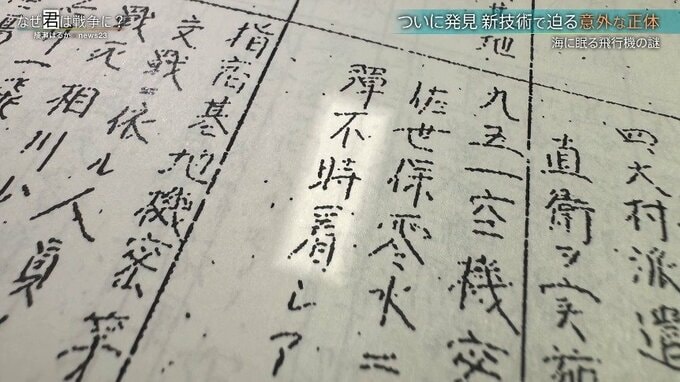 なぜ君は戦争に？
綾瀬はるか news23
ついに発見 新技術で迫る意外な正体
海に眠る飛行機の謎
四、大村派遣
直衛ヲ実施
基地
九五一空機交
佐世保零水ニ
弾不時着シア
指宿基地機密第
交戦ニ依ル人員